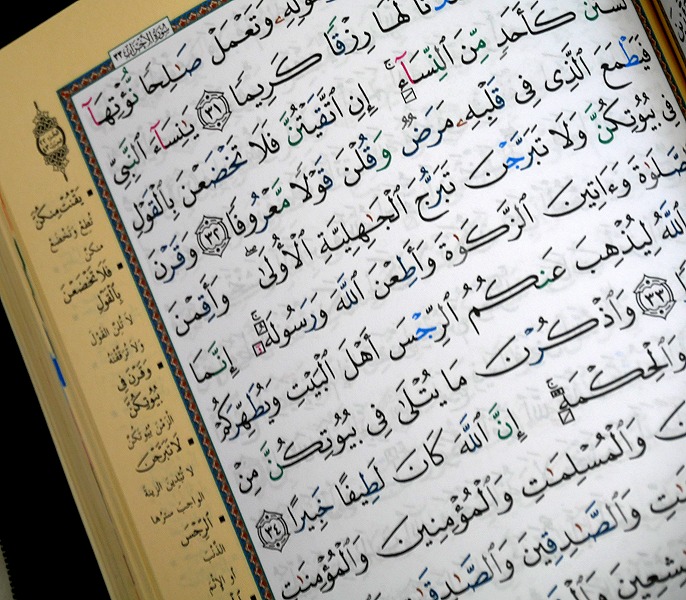 سُورَةُ الأَحْزَابِ ٣٣
وَتَعْمَلْ صَـٰلِحًا نُّؤْتِهَآ
لَهَا رِزْقًا كَرِيمًا ٣١ يَـٰنِسَآءَ ٱلنَّبِيِّ
لَسْتُنَّ كَأَحَدٍ مِّنَ ٱلنِّسَآءِ ۚ إِنِ ٱتَّقَيْتُنَّ فَلَا تَخْضَعْنَ بِٱلْقَوْلِ
فَيَطْمَعَ ٱلَّذِى فِى قَلْبِهِۦ مَرَضٌ وَقُلْنَ قَوْلًا مَّعْرُوفًا ٣٢ وَقَرْنَ
فِى بُيُوتِكُنَّ وَلَا تَبَرَّجْنَ تَبَرُّجَ ٱلْجَـٰهِلِيَّةِ ٱلْأُولَىٰ ۖ وَأَقِمْنَ
ٱلصَّلَوٰةَ وَءَاتِينَ ٱلزَّكَوٰةَ وَأَطِعْنَ ٱللَّهَ وَرَسُولَهُۥٓ ۚ إِنَّمَا
ٱللَّهُ لِيُذْهِبَ عَنكُمُ ٱلرِّجْسَ أَهْلَ ٱلْبَيْتِ وَيُطَهِّرَكُمْ
٣٣ وَٱذْكُرْنَ مَا يُتْلَىٰ فِى بُيُوتِكُنَّ مِنْ
وَٱلْحِكْمَةِ ۚ إِنَّ ٱللَّهَ كَانَ لَطِيفًا خَبِيرًا ٣٤
وَٱلْمُسْلِمَـٰتِ وَٱلْمُؤْمِنِينَ وَٱلْمُؤْمِنَـٰتِ
وَٱلصَّـٰدِقِينَ وَٱلصَّـٰدِقَـٰتِ
يَقْنُتْ مِنكُنَّ
تُطِعْ وَتَخْضَعْ
مِنكُنَّ
فَلَا تَخْضَعْنَ
بِالْقَوْلِ
لَا تُلِنَّ القَوْلَ
وَلَا تُرَقِّقْنَهُ
وَقَرْنَ فِي
بُيُوتِكُنَّ
الْزَمْنَ بُيُوتَكُنَّ
لَا تَبَرَّجْنَ
لَا تُبْدِينَ الزِّينَةَ
الواجب سترها
الرِّجْسَ
الذَّنْبَ
أو الإثمَ